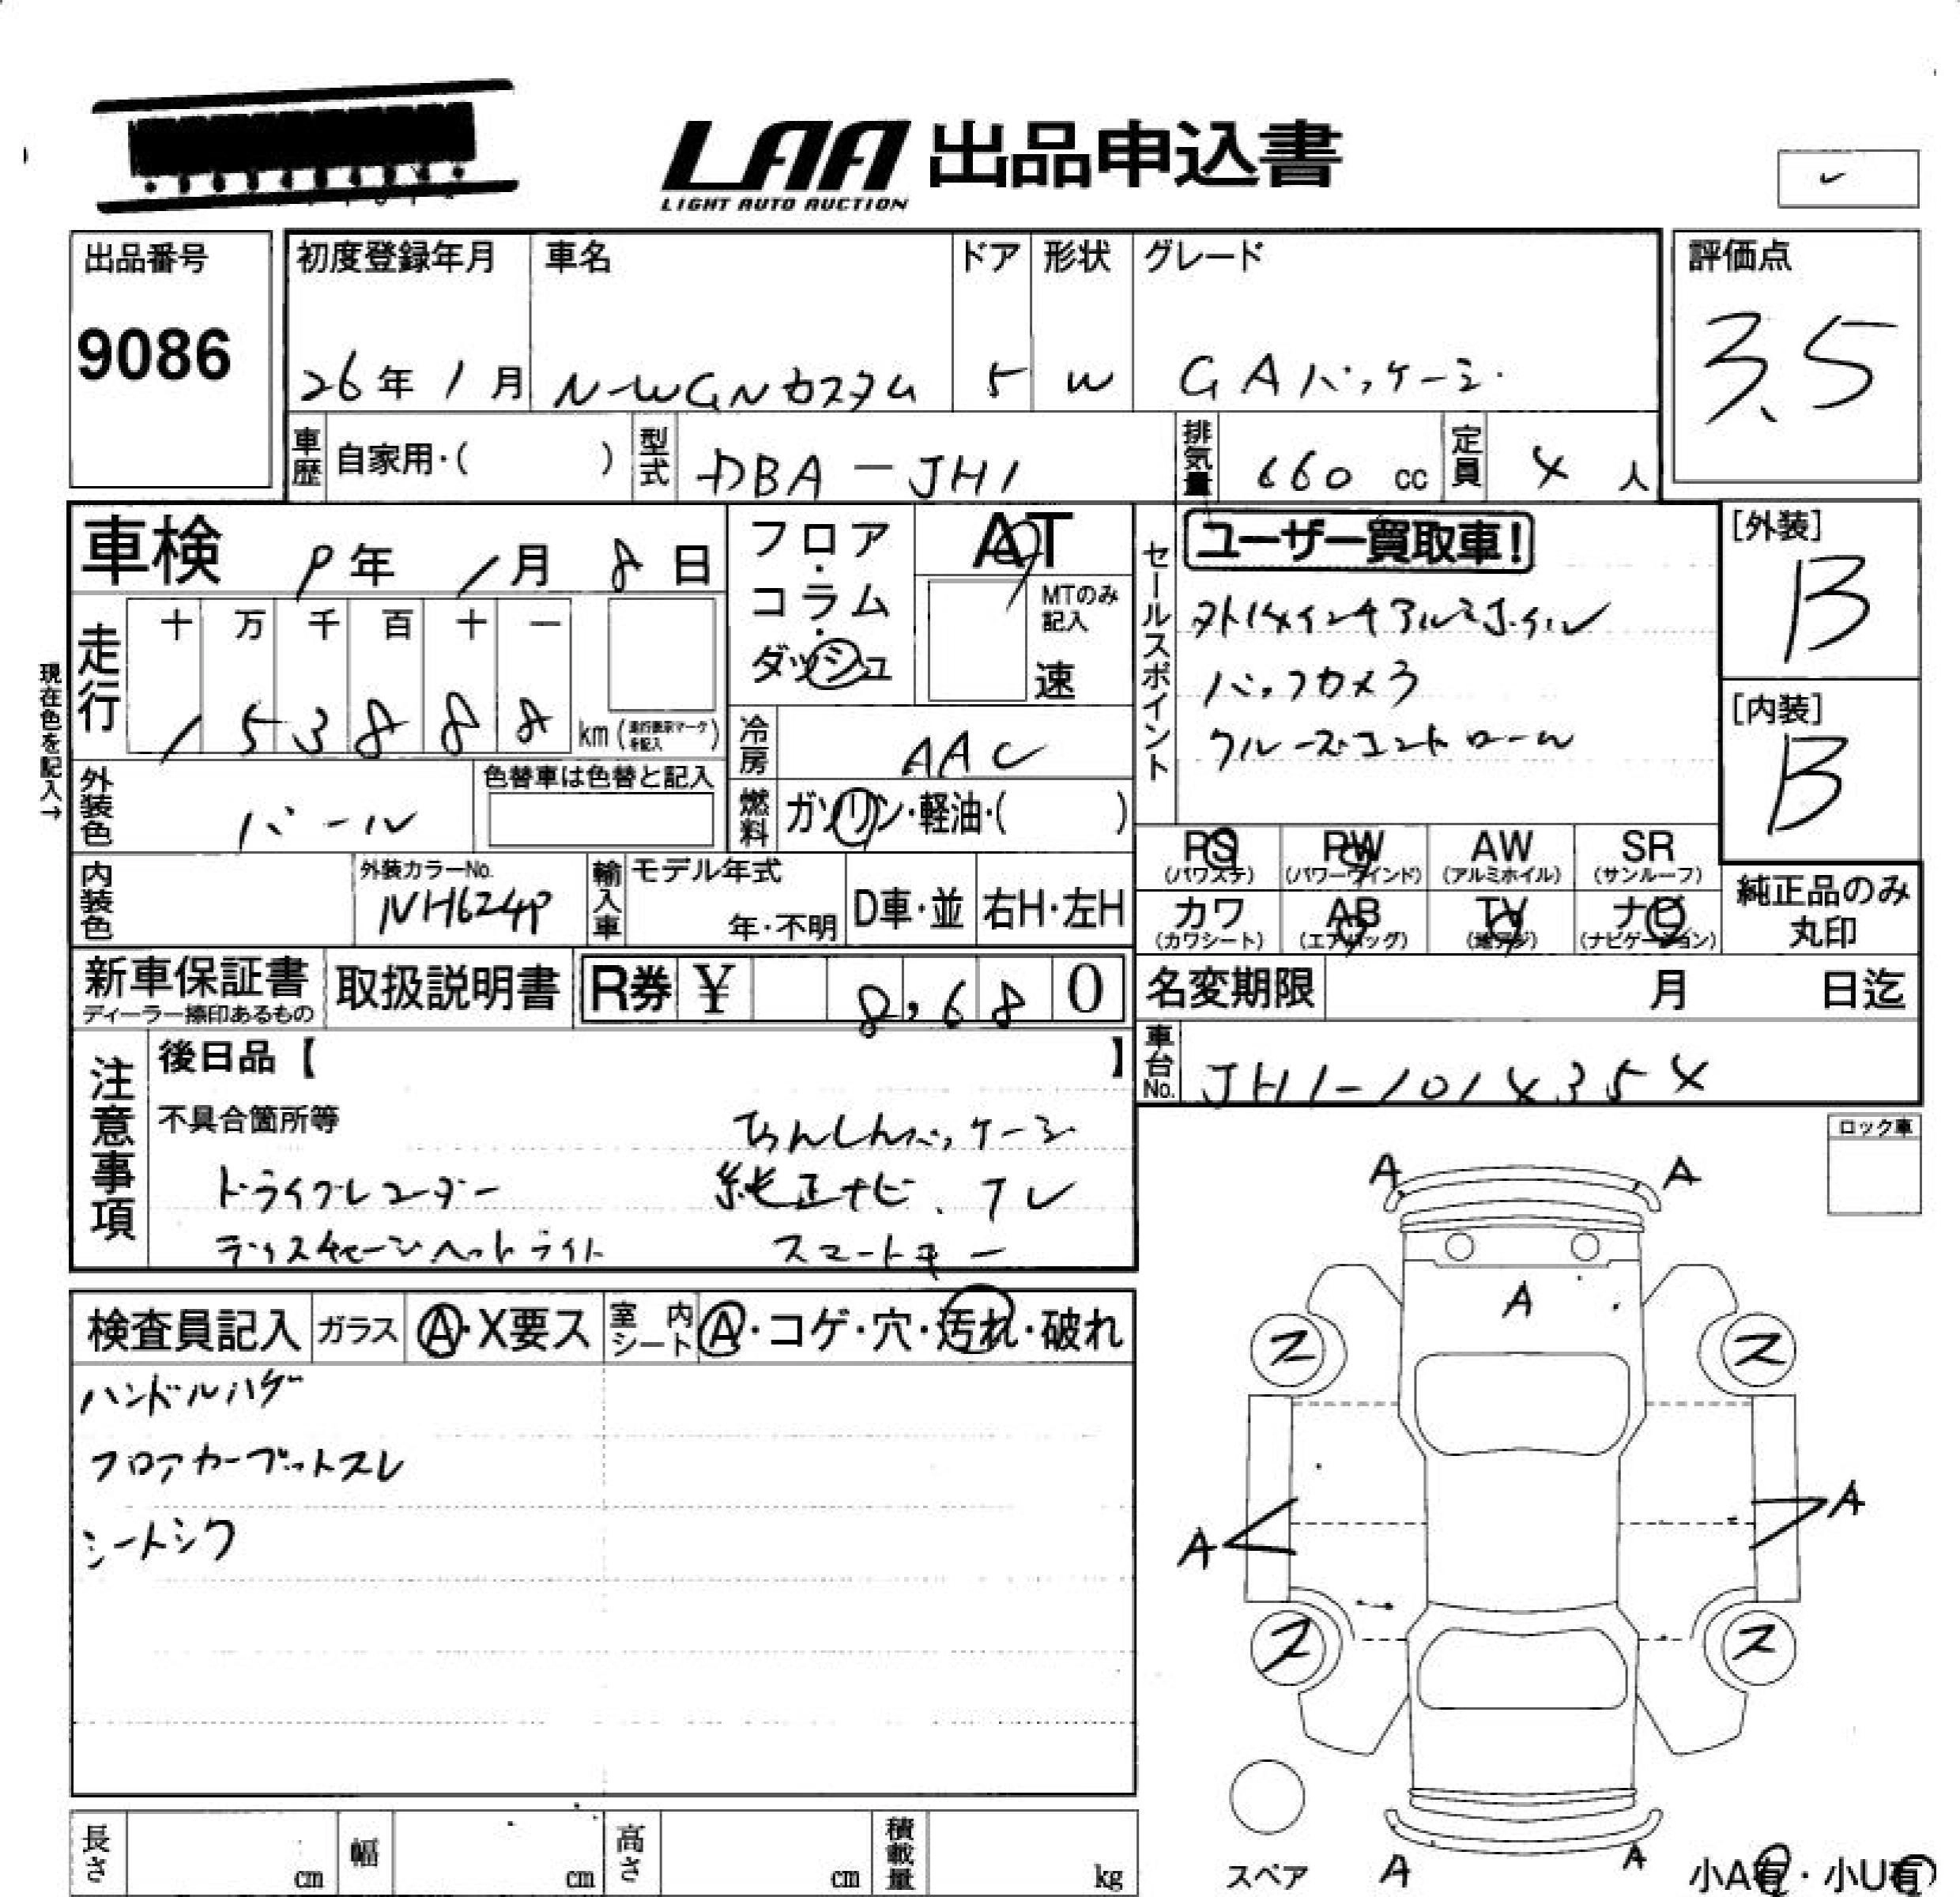 LAA 出品申込書
LIGHT AUTO AUCTION
出品番号
9086
初度登録年月
26年1月
車名
N-WGNカスタム
ドア
5
形状
W
グレード
GAパッケージ
評価点
3.5
車歴 自家用・( )
型式 DBA-JH1
排気量 660 cc
定員 4 人
車検 9年1月8日
フロア・コラム・ダッシュ
AT
MTのみ記入
速
セールスポイント
ユーザー買取車!
バックカメラ
クルーズコントロール
[外装]
B
[内装]
B
現在色を記入→
走行
十 万 千 百 十 一
1 5 3 8 8 8 km (走行表示マークを記入)
冷房 AAC
外装色 パール
色替車は色替と記入
燃料 ガソリン・軽油・( )
内装色
外装カラーNo.
NH624P
輸入車
モデル年式
年・不明
D車・並
右H・左H
PS (パワステ)
PW (パワーウインド)
AW (アルミホイル)
SR (サンルーフ)
カワ (カワシート)
AB (エアバッグ)
TV (地デジ)
ナビ (ナビゲーション)
純正品のみ丸印
新車保証書
ディーラー捺印あるもの
取扱説明書
R券 ¥ 8,680
名変期限 月 日迄
車台No. JH1-1014354
注意事項
後日品【 】
不具合箇所等
あんしんパッケージ
ドライブレコーダー
純正ナビ、テレ
ディスチャージヘッドライト
スマートキー
ロック車
検査員記入
ガラス A・X要ス
室内シート A・コゲ・穴・汚れ・破れ
ハンドルハゲ
フロアカーペットスレ
シートシワ
A A
A
ス ス
A A
ス ス
A A
スペア
小A有・小U有
長さ cm
幅 cm
高さ cm
積載量 kg